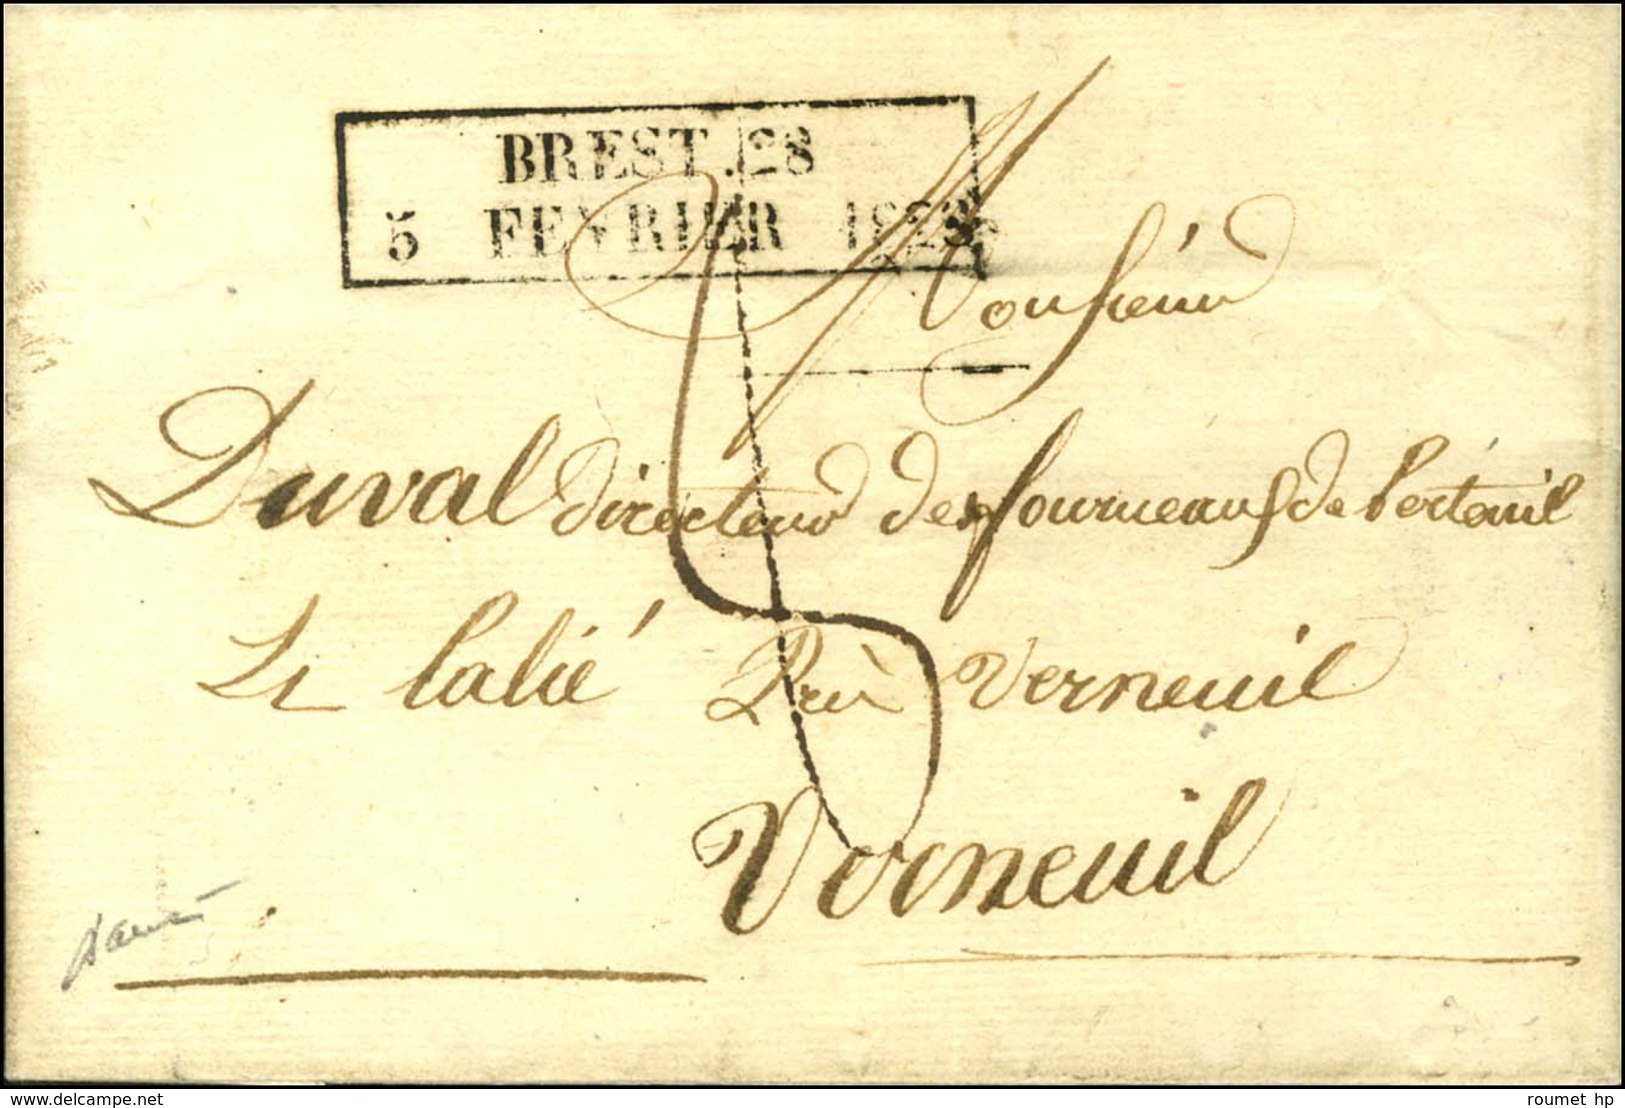 BREST. 28
5 FEVRIER 1828
Monsieur
Duval directeur des fourneaux de
Verneuil
Verneuil
www.delcampe.net
roumet hp